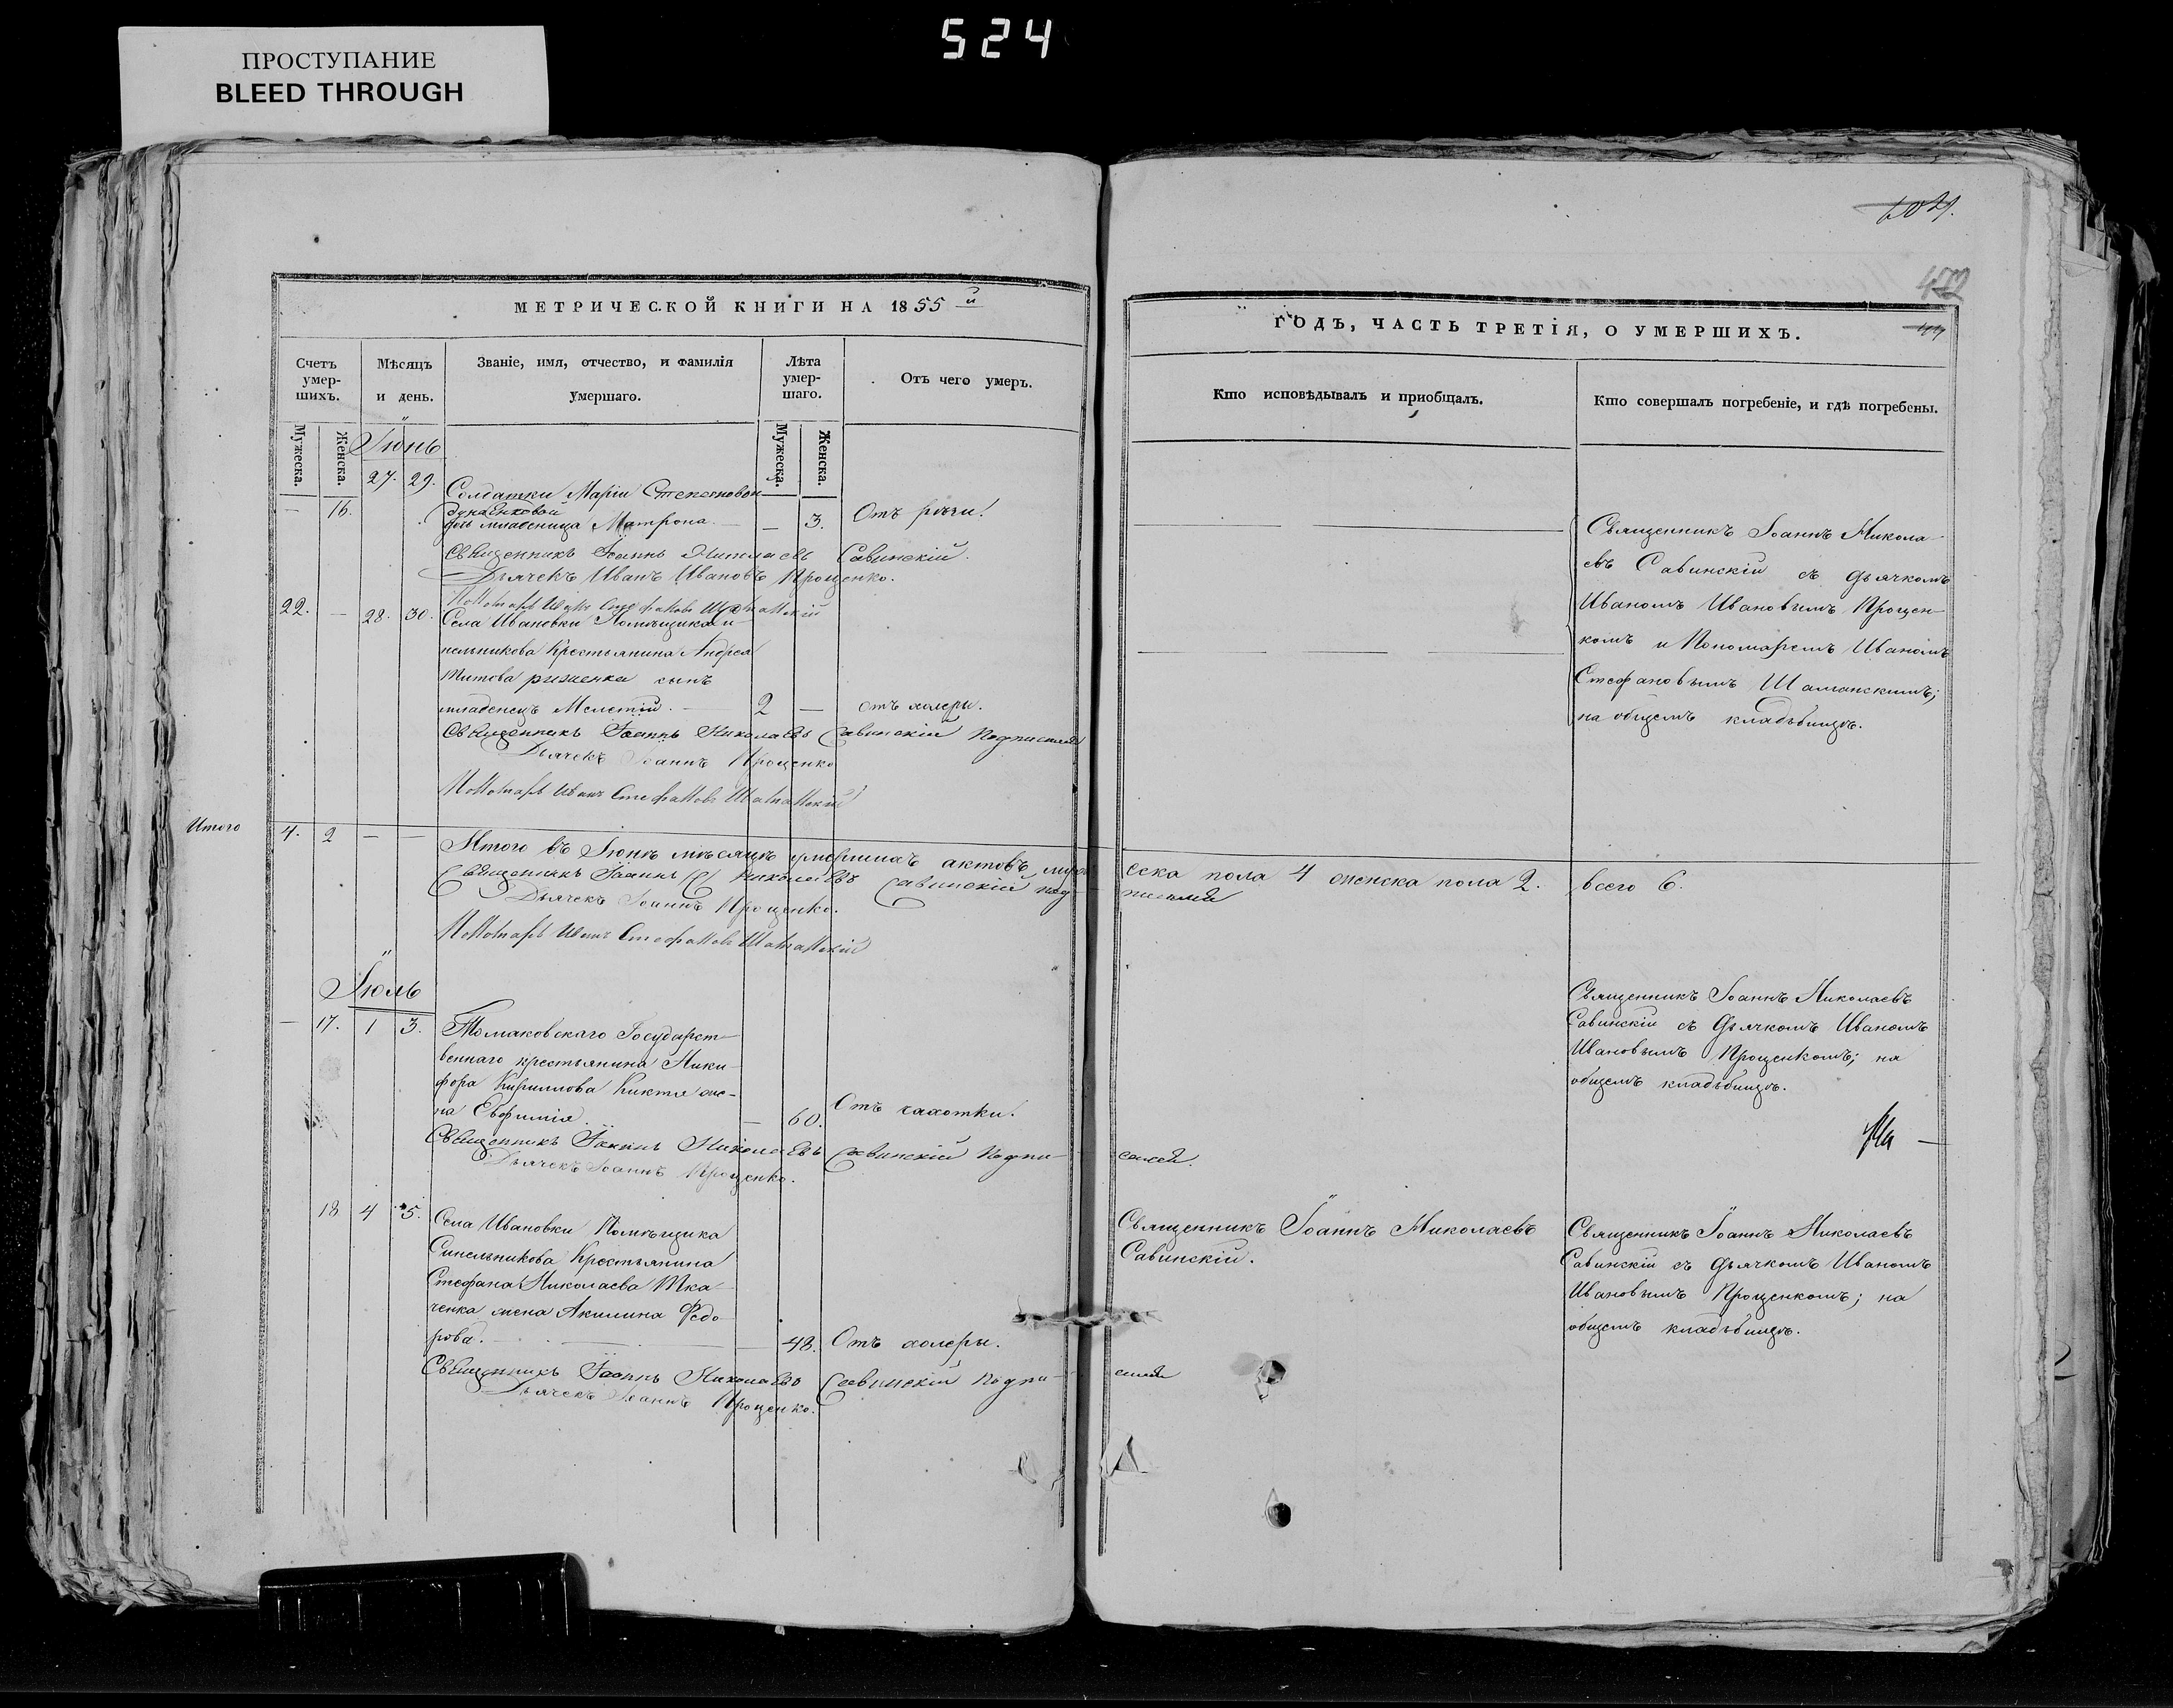 524
ПРОСТУПАНИЕ
BLEED THROUGH
МЕТРИЧЕСКОЙ КНИГИ НА 1855 й
Счетъ умер-шихъ.
Мѣсяцъ и день.
Званіе, имя, отчество, и фамилія умершаго.
Лѣта умер-шаго.
Отъ чего умеръ.
Мужеска.
Женска.
Мужеска.
Женска.
Іюнь
27. 29.
Солдатки Маріи Степановой
— 16.
дочь младеница Матрона. — 3.
Священникъ Іоаннъ Николаевъ Савинскій.
Дьячекъ Иванъ Ивановъ Проценко.
Пономарь Иванъ Стефановъ Шаманскій
22. — 28. 30. Села Ивановки Помѣщика Си-
нельникова Крестьянина Андрея
Титова сынъ
младенецъ Мелетій. — 2 — отъ холеры.
Священникъ Іоаннъ Николаевъ Савинскій Подписался
Дьячекъ Іоаннъ Проценко
Пономарь Иванъ Стефановъ Шаманскій
Итого 4. 2 — —
Итого въ Іюнѣ мѣсяцѣ умершихъ актовъ муже
Священникъ Іоаннъ Николаевъ Савинскій под-
Дьячекъ Іоаннъ Проценко.
Пономарь Иванъ Стефановъ Шаманскій
Іюль
— 17. 1 3. Томаковскаго Государст-
веннаго крестьянина Ники-
фора Кириллова Киктя же-
на Евфимія — 60. Отъ чахотки.
Священникъ Іоаннъ Николаевъ Савинскій Подпи-
Дьячекъ Іоаннъ Проценко.
18 4 5. Села Ивановки Помѣщика
Синельникова Крестьянина
Стефана Николаева Тка-
ченка жена Акилина Федо-
рова. — 48. Отъ холеры.
Священникъ Іоаннъ Николаевъ Савинскій Подпи-
Дьячекъ Іоаннъ Проценко.
ГОДЪ, ЧАСТЬ ТРЕТІЯ, О УМЕРШИХЪ.
Кто исповѣдывалъ и приобщалъ.
Кто совершалъ погребеніе, и гдѣ погребены.
Священникъ Іоаннъ Никола-
евъ Савинскій съ дьячкомъ
Иваномъ Ивановымъ Процен-
комъ и Пономаремъ Иваномъ
Стефановымъ Шаманскимъ;
на общемъ кладъбищѣ.
ска пола 4 женска пола 2. всего 6.
писался
Священникъ Іоаннъ Николаевъ
Савинскій съ дьячкомъ Иваномъ
Ивановымъ Проценкомъ; на
общемъ кладъбищѣ.
сался.
Священникъ Іоаннъ Николаевъ
Савинскій.
Священникъ Іоаннъ Николаевъ
Савинскій съ дьячкомъ Иваномъ
Ивановымъ Проценкомъ; на
общемъ кладъбищѣ.
сался